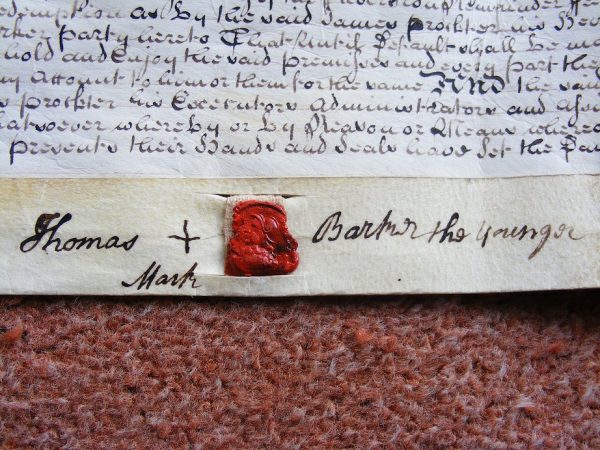 demption as by the said James Prokter his
party hereto That Until Default shall be
hold and Enjoy the said premises and every part
Account to him or them for the same And the said
Prokter his Executors Administrators and
whatsoever whereby or by Reason or Means
presents their Hands and Seals have Set the
Thomas + Barker the Younger
Mark